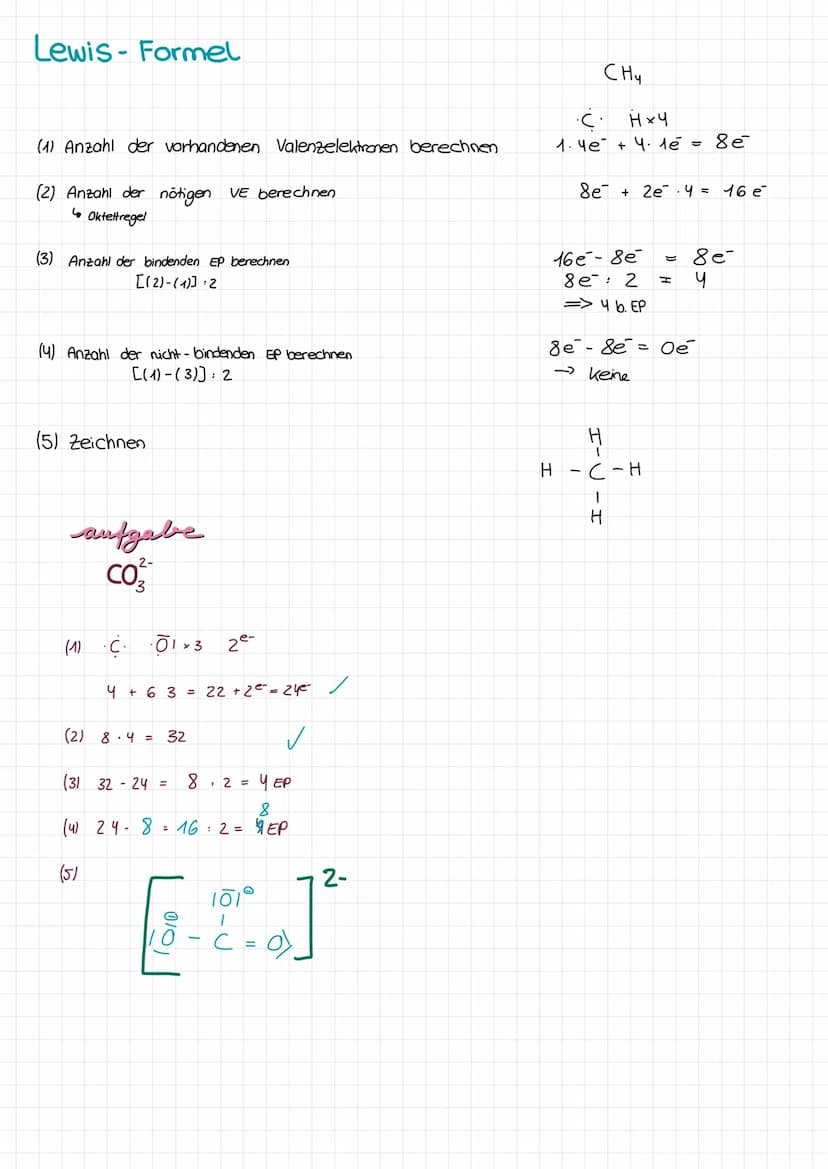 Lewis - Formel
CH₄
·Ċ· Ḣ×4
(1) Anzahl der vorhandenen Valenzelektronen berechnen 1·4e⁻ + 4·1e⁻ = 8e⁻
(2) Anzahl der nötigen VE berechnen 8e⁻ + 2e⁻·4 = 16e⁻
↳ Oktettregel
(3) Anzahl der bindenden EP berechnen 16e⁻ - 8e⁻ = 8e⁻
[(2)-(1)] : 2 8e⁻ : 2 = 4
=> 4 b. EP
(4) Anzahl der nicht-bindenden EP berechnen 8e⁻ - 8e⁻ = 0e⁻
[(1)-(3)] : 2 → keine
(5) Zeichnen
H
H - C - H
H
aufgabe
CO₃²⁻
(1) ·Ċ· ·O̅| × 3 2e⁻
4 + 6 3 = 22 + 2e⁻ = 24e⁻ ✓
(2) 8 · 4 = 32 ✓
(3) 32 - 24 = 8 : 2 = 4 EP
8
(4) 24 - 8 = 16 : 2 = EP
(5)
2-
|O̅|⊖
⊖
|O̅ - C = O⟩